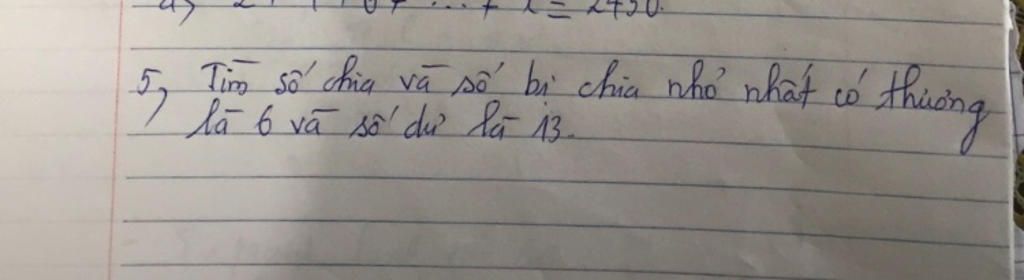 = 2450.
5, Tìm số chia và số bị chia nhỏ nhất có thương
là 6 và số dư là 13.